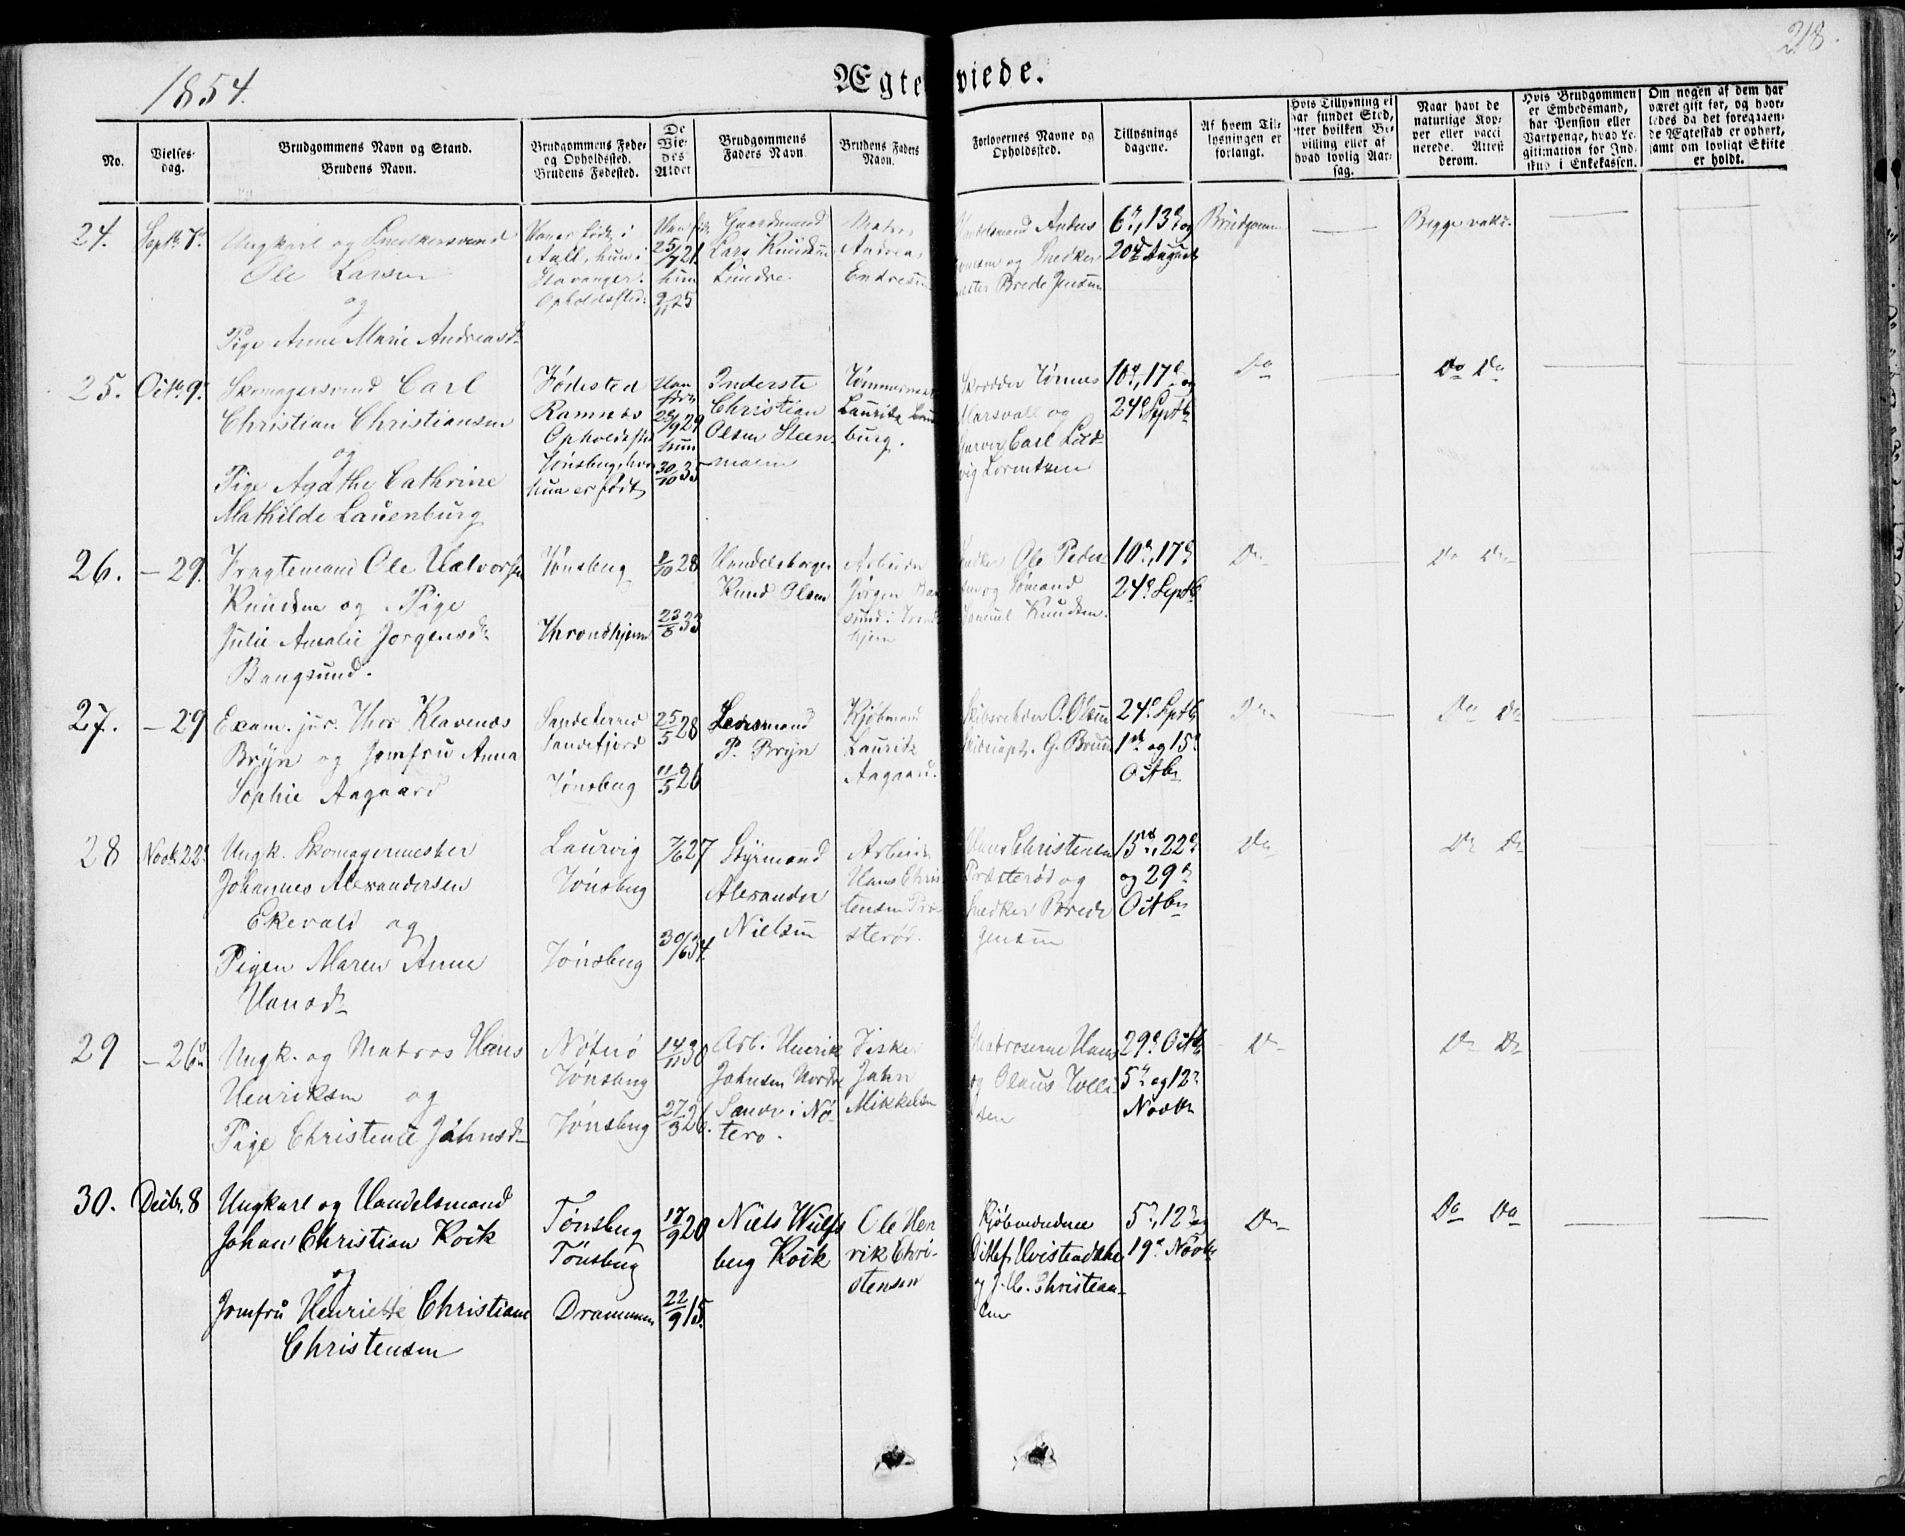 218.
1854.
Ægteviede.
No.
Vielses-
dag.
Brudgommens Navn og Stand.
Brudens Navn.
Brudgommens Føde-
og Opholdssted.
Brudens Fødested.
De
Vie-
des
Alder
Brudgommens
Faders Navn
Brudens Faders
Navn.
Forlovernes Navne og
Opholdssted.
Tillysnings
dagene.
Af hvem Til-
lysningen er
forlangt.
Hvis Tillysning ei
har fundet Sted,
etter hvilken Be-
villing eller af
hvad lovlig Aar-
sag.
Naar havt de
naturlige Kop-
per eller vacci
nerede. Attest
derom.
Hvis Brudgommen
er Embedsmand,
har Pension eller
Vartpenge, hvad Le-
gitimation for Ind-
skud i Enkekassen.
Om nogen af dem har
været gift før, og hvor-
ledes da det foregaaen-
de Ægteskab er ophørt,
samt om lovligt Skifte
er holdt.
24.
Septb. 7d.
Ungkarl og Snedkersvend
Ole Larsen
og
Pige Anne Marie Andreasdr
Han er født i
hun i
Stavanger.
Opholdssted:
25/7 21
hun
9/11 25
Gaardmand
Lars Knudsen
Matros
Andreas
Endresen
Anders
og Snedker
Brede Jensen
6d, 13d og
20d August
Brudgommen
Begge vakc.
25.
Octb. 9d.
Skomagersvend Carl
Christian Christiansen
og
Pige Agathe Cathrine
Mathilde Lauenburg
Fødested
Ramnæs
Opholdssted
Tønsberg, hvor
hun er født
Han
29
hun
30/10 35
Inderste
Christian
Olsen Steen-
Lauritz Lauen
burg.
og
Carl Lud-
vig Lorentsen
10d, 17d og
24d Septb
Do
Do Do
26.
– 29.
Fragtemand Ole Halvorsen
Knudsen og Pige
Julie Amalie Jørgensdr
Bangsund.
Tønsberg
Throndhjem
2/10 28
23/8 33
Handelsborger
Knud Olsen
Arbeider
Jørgen Ban
sund i Trond
hjem
Ole Peder-
sen og Sømand
Samuel Knudsen.
10d, 17d
24d Septb
Do
Do Do
27.
– 29
Exam. jur. Thor Klavenæs
Bryn og Jomfru Anna
Sophie Aagaard
Sandeherred
Sandefjord
Tønsberg
25/5 28
11/5 26
Lensmand
P. Bryn
Kjøbmand
Lauritz
Aagaard.
Skibsreder O. Olsen
Skibscapt. G. Bruun
24d Septb
1ste og 15d
Octbr
Do
Do Do
28
Novb. 22d
Ungk. Skomagermester
Johannes Alexandersen
Ekevald og
Pigen Maren Anne
Hansdr
Laurvig
Tønsberg
Tønsberg
7/6 27
30/6 34.
Styrmand
Alexander
Nielsen
Arbeider
Hans Chris
tensen Præ
sterød.
Hans Christensen
Præsterød og
Snedker Brede
Jensen
15d, 22d
og 29d
Octbr
Do
Do Do
29
– 26d
Ungk. og Matros Hans
Henriksen og
Pige Christence Jahnsdr
Nøterø
Tønsberg
Tønsberg
14/11 30
27/3 26.
Arb. Henrik
Johnsen Nordre
Sande i Nø-
terø.
Fisker
Jahn
Mikkelsen
Matroserne Hans
og Olaus Tolli
sen
29d Octb
5d og 12d
Novbr
Do
Do Do
30.
Decbr. 8
Ungkarl og Handelsmand
Johan Christian Kock
og
Jomfru Henriette Christiane
Christensen
Tønsberg
Tønsberg
Drammen
17/9 20
22/9 15.
Niels Wulfs
berg Kock
Ole Hen
rik Chri-
stensen
Kjøbmændene
Ditlef Hvistendahl
og J. C. Christian-
sen
5d, 12d og
19d Novbr
Do
Do Do